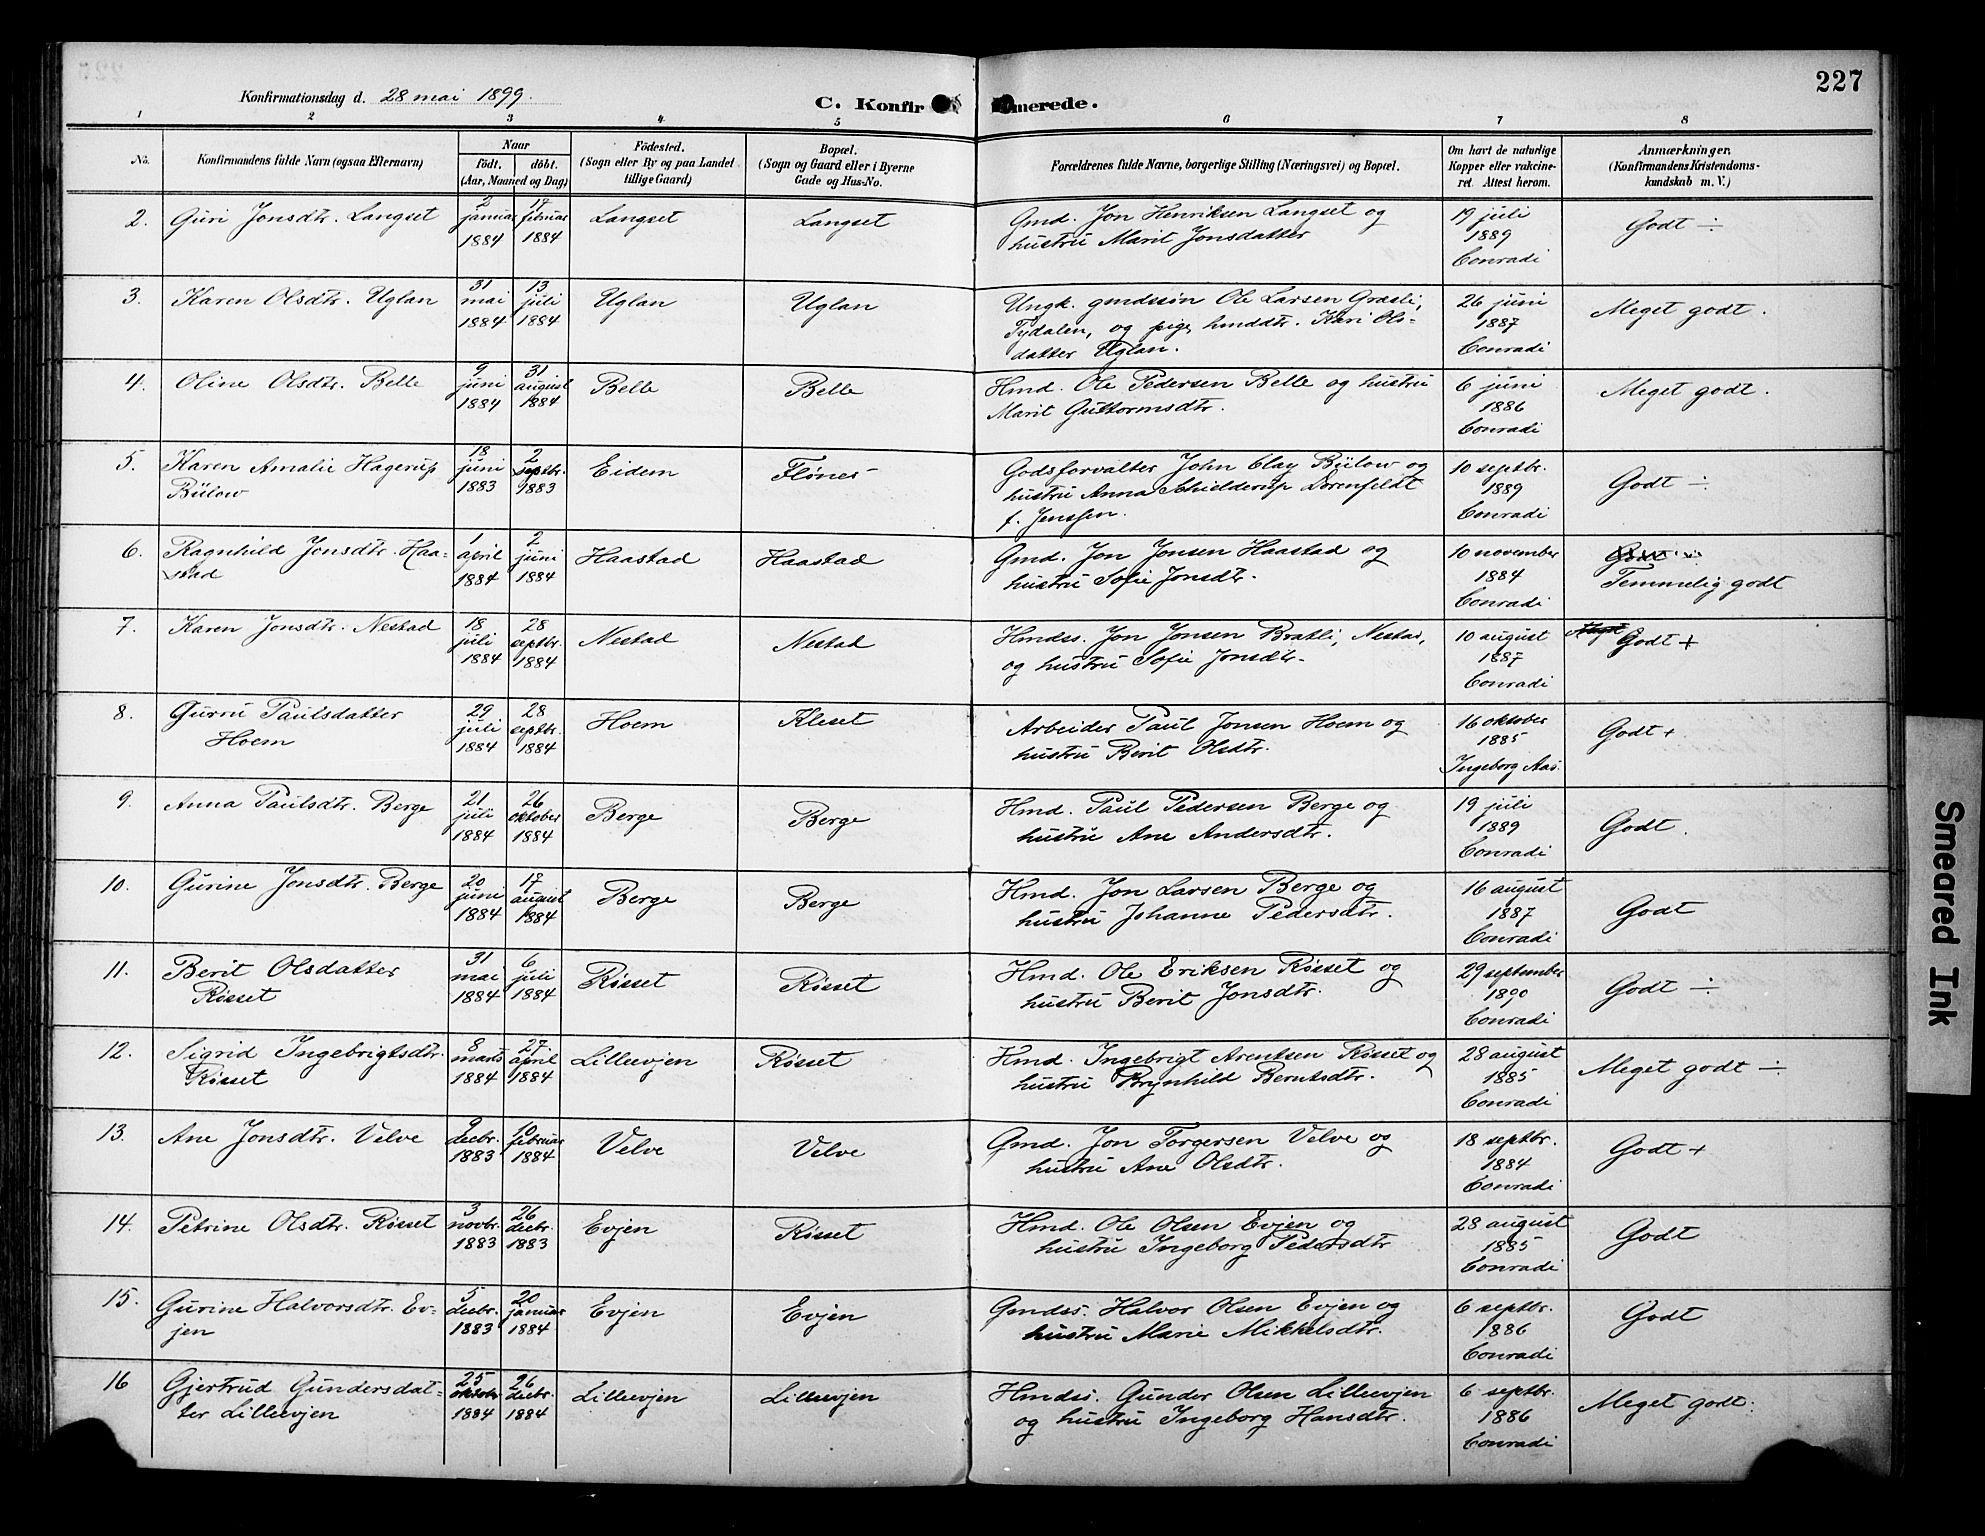 227
Konfirmationsdag d. 28 mai 1899.
C. Konfir merede.
1 2 3 4 5 6 7 8
No.
Konfirmandens fulde Navn (ogsaa Efternavn)
Naar
födt. döbt.
(Aar, Maaned og Dag)
Födested.
(Sogn eller By og paa Landet
tillige Gaard)
Bopæl.
(Sogn og Gaard eller i Byerne
Gade og Hus-No.
Forældrenes fulde Navne, borgerlige Stilling (Næringsvei) og Bopæl.
Om havt de naturlige
Kopper eller vakcine-
ret. Attest herom.
Anmærkninger,
(Konfirmandens Kristendoms-
kundskab m. V.)
2. Guri Jonsdtr. Langset
2 januar 1884
17 februar 1884
Langset
Langset
Gmd. Jon Henriksen Langset og
hustru Marit Jonsdatter
19 juli
1889
Conradi
Godt ÷
3. Karen Olsdtr. Uglan
31 mai 1884
13 juli 1884
Uglan
Uglan
Ungk. gmdssøn Ole Larsen Græsli,
Tydalen, og pige, hmddtr. Kari Ols-
datter Uglan.
26 juni
1887
Conradi
Meget godt.
4. Oline Olsdtr. Belle
9 juni 1884
31 august 1884
Belle
Belle
Hmd. Ole Pedersen Belle og hustru
Marit Guttormsdtr.
6 juni
1886
Conradi
Meget godt.
5. Karen Amalie Hagerup
Bülow
18 juni 1883
2 septbr. 1883
Eidem
Flønes
Godsforvalter John Clay Bülow og
hustru Anna Schielderup Dorenfeldt
f. Jenssen.
10 septbr.
1889
Conradi
Godt ÷
6. Ragnhild Jonsdtr. Haa-
stad
1 april 1884
2 juni 1884
Haastad
Haastad
Gmd. Jon Jonsen Haastad og
hustru Sofie Jonsdtr.
10 november
1884
Conradi
Godt
Temmelig godt
7. Karen Jonsdtr. Nestad
18 juli 1884
28 septbr. 1884
Nestad
Nestad
Hmdss. Jon Jonsen Bratli, Nestad,
og hustru Sofie Jonsdtr.
10 august
1887
Conradi
Godt +
8. Gurru Paulsdatter
Hoem
29 juli 1884
28 septbr. 1884
Hoem
Kleset
Arbeider Paul Jonsen Hoem og
hustru Berit Olsdtr.
16 oktober
1885
Ingeborg Aas.
Godt +
9. Anna Paulsdtr. Berge
21 juli 1884
26 oktober 1884
Berge
Berge
Hmd. Paul Pedersen Berge og
hustru Ane Andersdtr.
19 juli
1889
Conradi
Godt.
10. Gurine Jonsdtr. Berge
20 juni 1884
17 august 1884
Berge
Berge
Hmd. Jon Larsen Berge og
hustru Johanne Pedersdtr.
16 august
1887
Conradi
Godt
11. Berit Olsdatter
Røsset
31 mai 1884
6 juli 1884
Røsset
Røsset
Hmd. Ole Eriksen Røsset og
hustru Berit Jonsdtr.
29 september
1890
Conradi
Godt ÷
12. Sigrid Ingebrigtsdtr.
Røsset
8 marts 1884
27 april 1884
Lilleevjen
Røsset
Hmd. Ingebrigt Arentsen Røsset og
hustru Brynhild Berntsdtr.
28 august
1885
Conradi
Meget godt ÷
13. Ane Jonsdtr. Velve
9 decbr. 1883
10 februar 1884
Velve
Velve
Gmd. Jon Torgersen Velve og
hustru Ane Olsdtr.
18 septbr.
1884
Conradi
Godt +
14. Petrine Olsdtr. Røsset
3 novbr. 1883
26 decbr. 1883
Evjen
Røsset
Hmd. Ole Olsen Evjen og
hustru Ingeborg Pedersdtr
28 august
1885
Conradi
Godt
15. Gurine Halvorsdtr. Ev-
jen
5 decbr. 1883
20 januar 1884
Evjen
Evjen
Gmdss. Halvor Olsen Evjen og
hustru Marie Mikkelsdtr.
6 septbr.
1886
Conradi
Godt
16 Gjertrud Gundersdat-
ter Lilleevjen
25 oktobr 1884
26 decbr. 1884
Lilleevjen
Lilleevjen
Hmdss. Gunder Olsen Lilleevjen
og hustru Ingeborg Hansdtr.
6 septbr.
1886
Conradi
Meget godt.
Smeared Ink